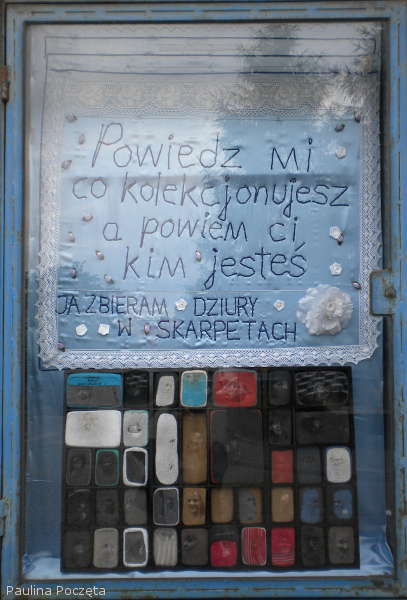 Powiedz mi
co kolekcjonujesz
a powiem ci
kim jesteś
JA ZBIERAM DZIURY
W SKARPETACH
Paulina Poczęta